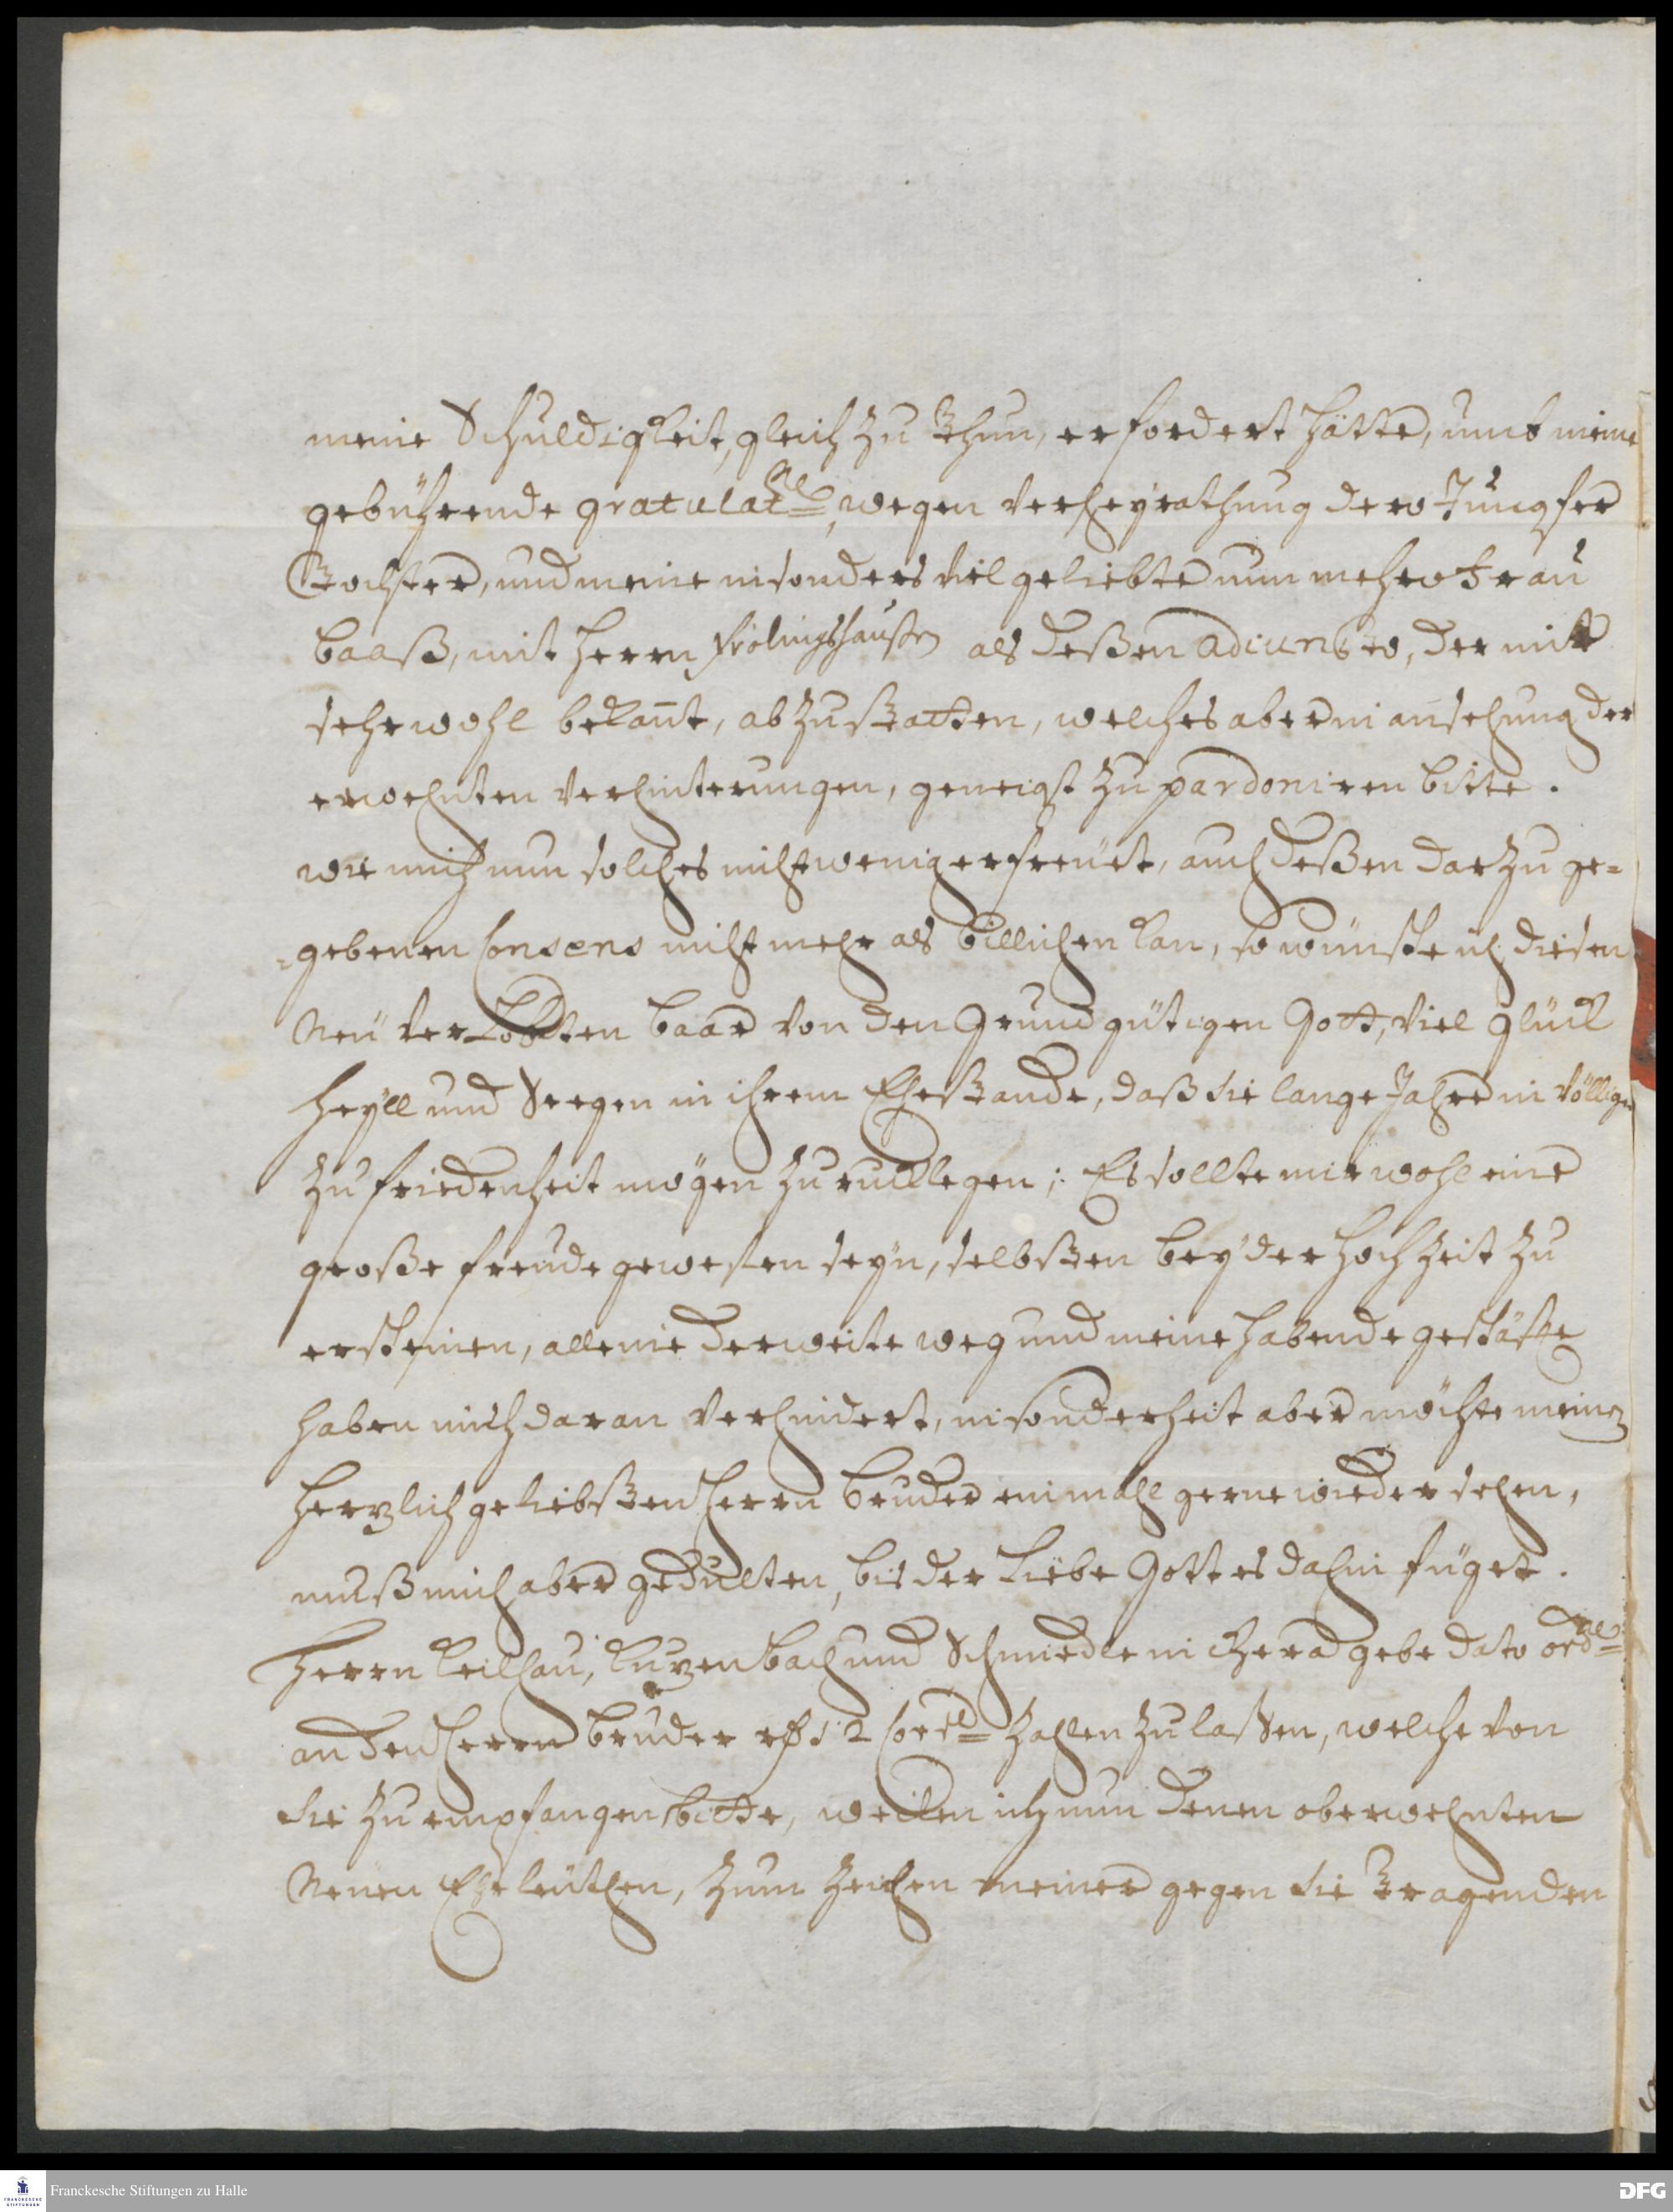 meine Schuldigkeit, gleich zu thun, erfordert hätte, umb meine
gebührende gratulatne, wegen verheyrathung dero Jungfer
Tochter, und meine insonders viel geliebte nun mehro Frau
Baaß, mit Herrn Frölinghaußen als deßen adiuncto, der mir
sehr wohl bekan̄t, abzustatten, welches aber in ansehung der
erwehnten verhinterungen, geneigst zu pardoniren bitte.
wie mich nun solches nicht wenig erfreüet, auch deßen darzu ge=
=gebenen Consens nicht mehr als billichen kan, so wünsche ich diesen
Neü verlobten Baar von den Grundgütigen Gott, viel glück
Heyll und Seegen in ihrem Ehestande, daß sie lange Jahre in völliger
zufriedenheit mögen zurucklegen; Es sollte mir wohl eine
große freude gewesen seyn, selbsten bey der Hochzeit zu
erscheinen, alleine der weite weg und meine habende geschäffte
haben mich daran verhindert, insonderheit aber möchte meinen
Hertzlich geliebsten Herrn Bruder einmahl gerne wieder sehen,
muß mich aber gedulten, bis der Liebe Gott es dahin füget.
Herrn und Schmiedle in Gera gebe dato ordre
an den Herrn Bruder 12 zahlen zu laßen, welche von
Sie zu empfangen bitte, weilen ich nun denen oberwehnten
Neuen Eheleüthen, zum Zeichen meiner gegen Sie tragenden
Franckesche Stiftungen zu Halle
DFG